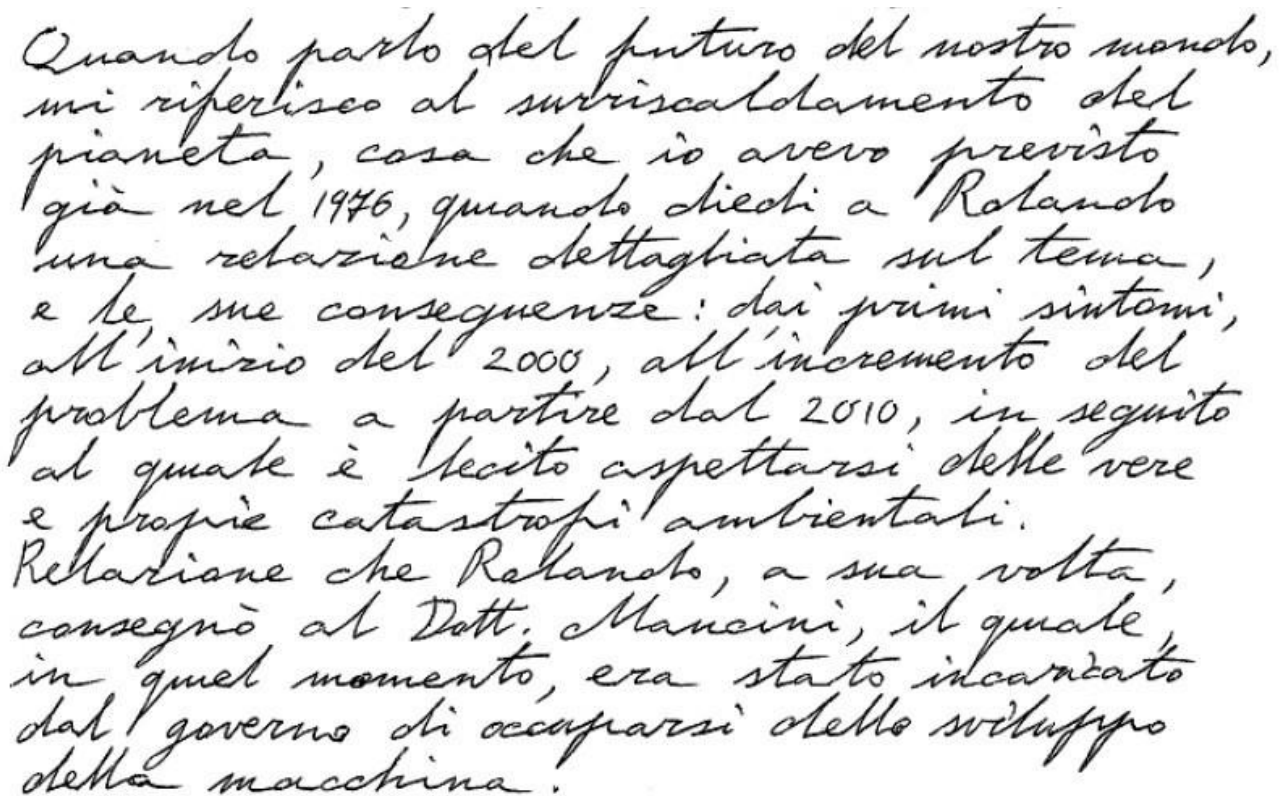 Quando parlo del futuro del nostro mondo,
mi riferisco al surriscaldamento del
pianeta, cosa che io avevo previsto
già nel 1976, quando diedi a Rolando
una relazione dettagliata sul tema,
e le sue conseguenze: dai primi sintomi,
all'inizio del 2000, all'incremento del
problema a partire dal 2010, in seguito
al quale è lecito aspettarsi delle vere
e propie catastrofi ambientali.
Relazione che Rolando, a sua volta,
consegnò al Dott. Mancini, il quale,
in quel momento, era stato incaricato
dal governo di occuparsi dello sviluppo
della macchina.